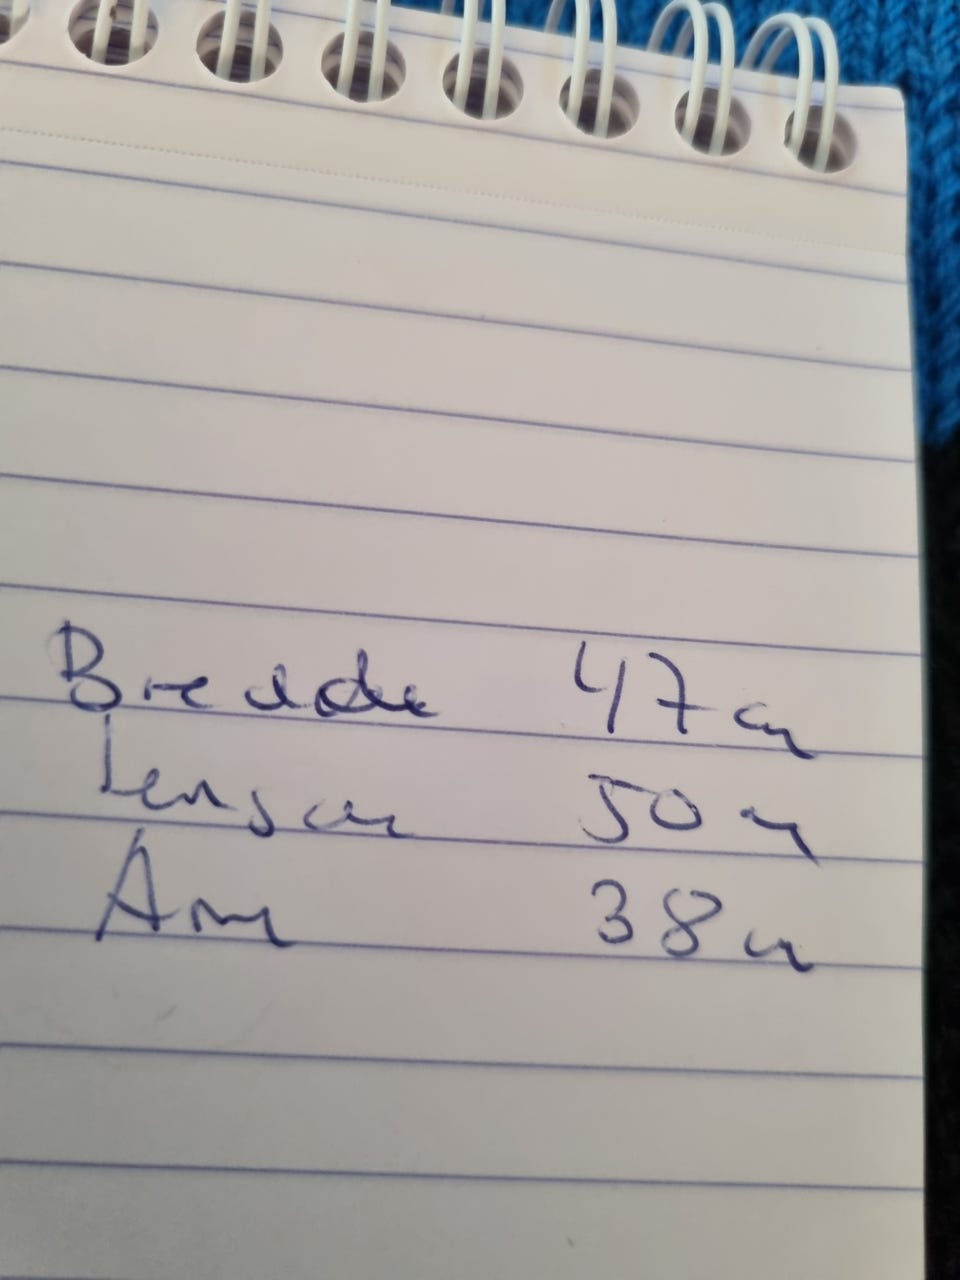 Bredde 47 cm
Lengde 50 cm
Arm 38 cm